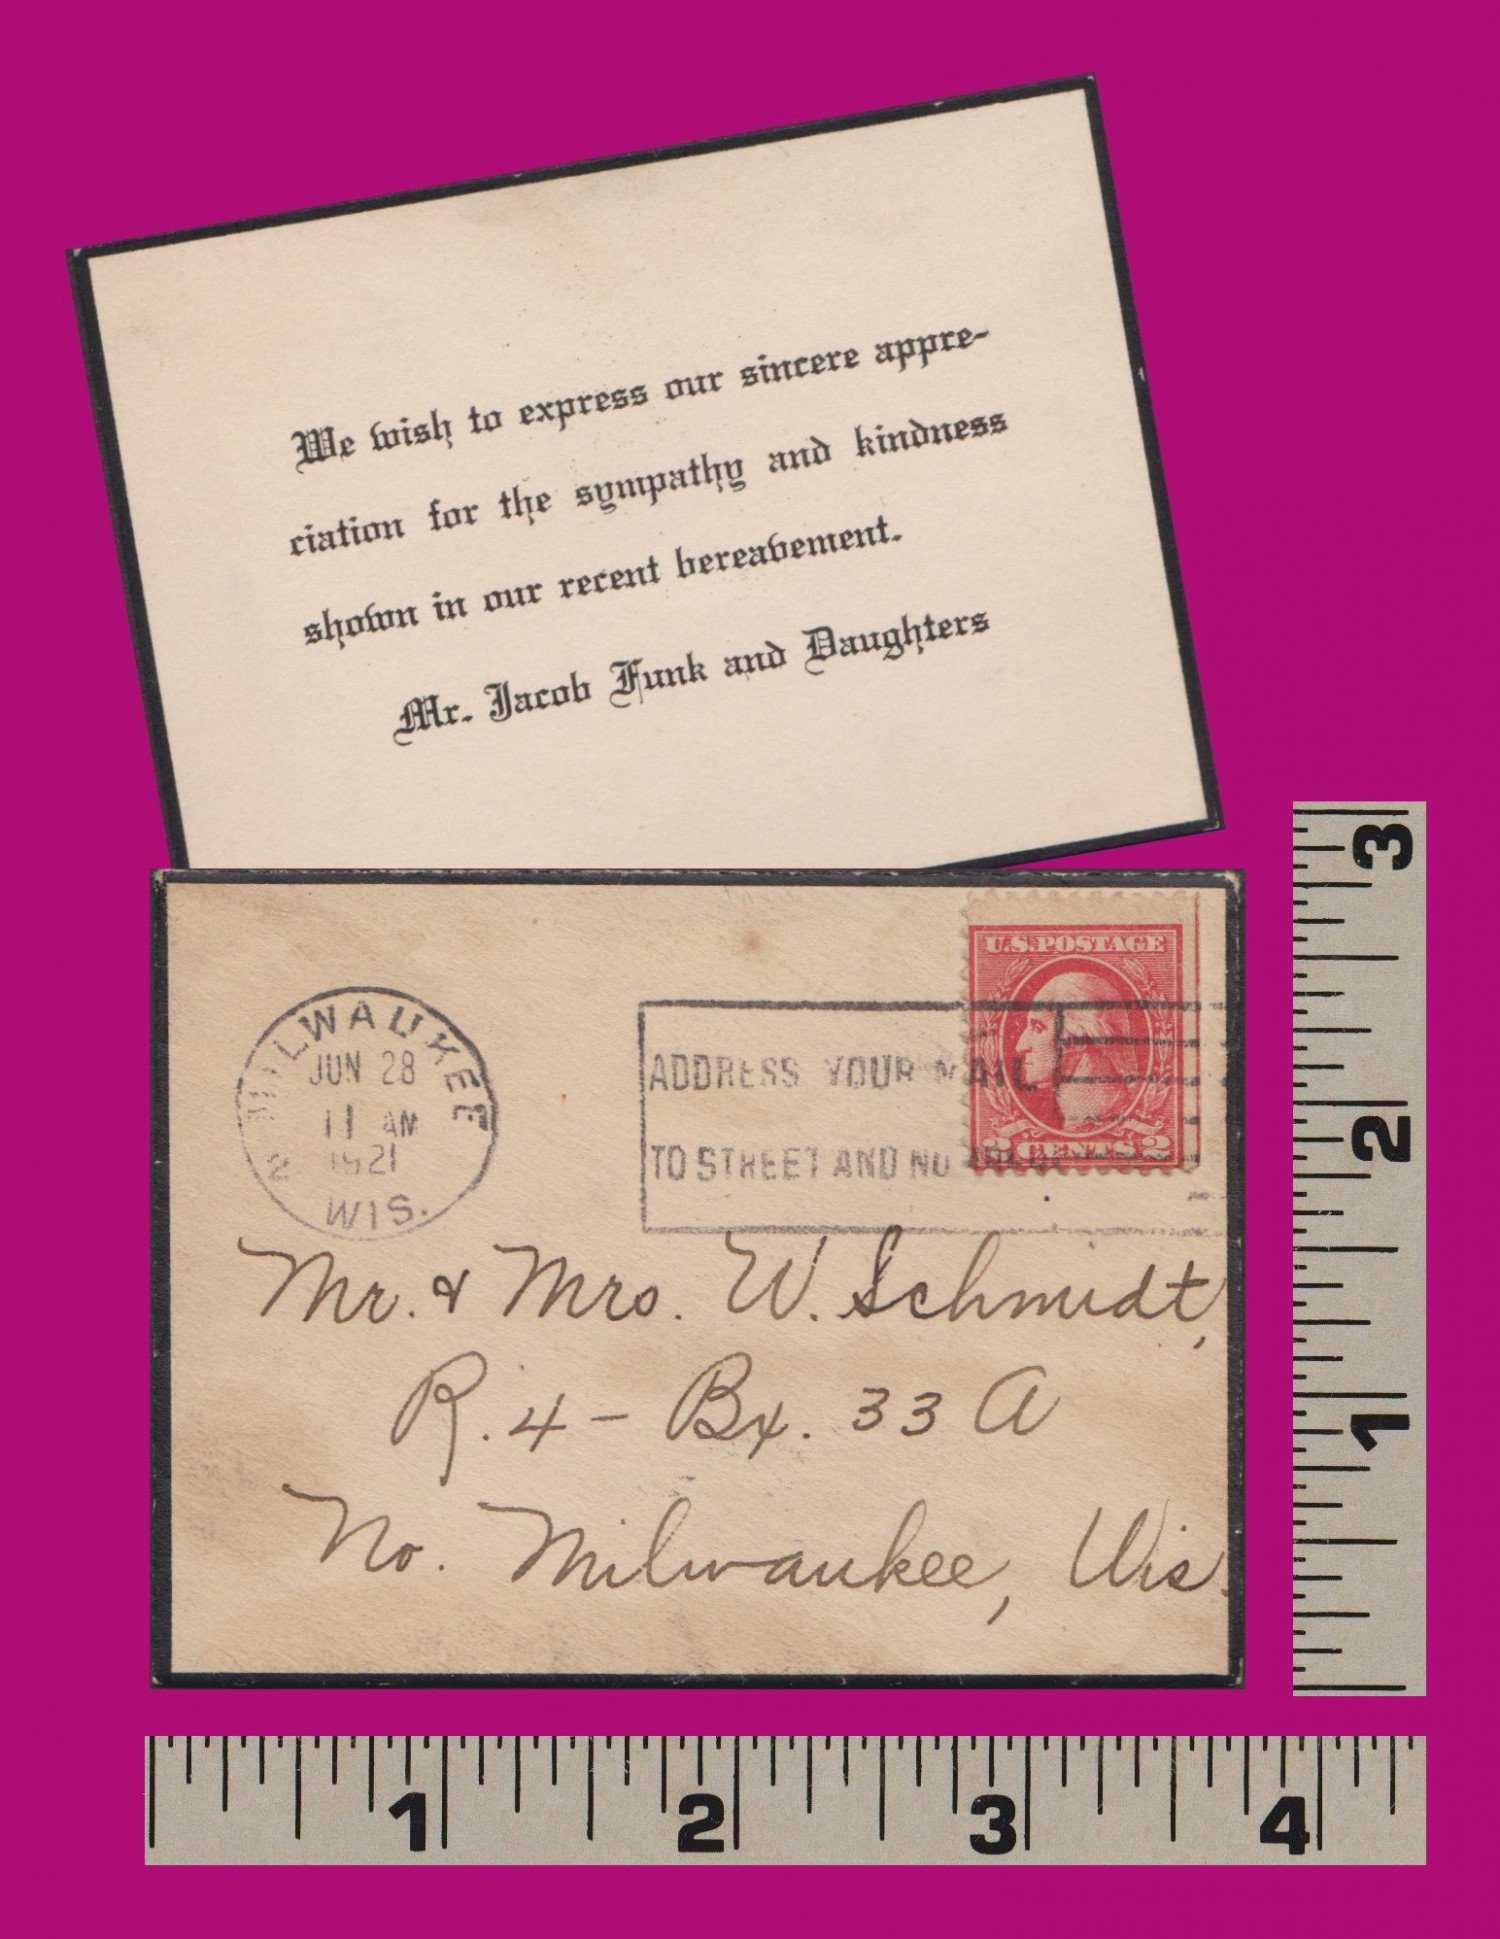 We wish to express our sincere appre-
ciation for the sympathy and kindness
shown in our recent bereavement.
Mr. Jacob Funk and Daughters
MILWAUKEE
JUN 28
11 AM
1921
WIS.
ADDRESS YOUR MAIL
TO STREET AND NO
U.S. POSTAGE
2 CENTS 2
Mr. & Mrs. W. Schmidt,
R. 4 - Bx. 33 A
No. Milwaukee, Wis.
3
2
1
1 2 3 4